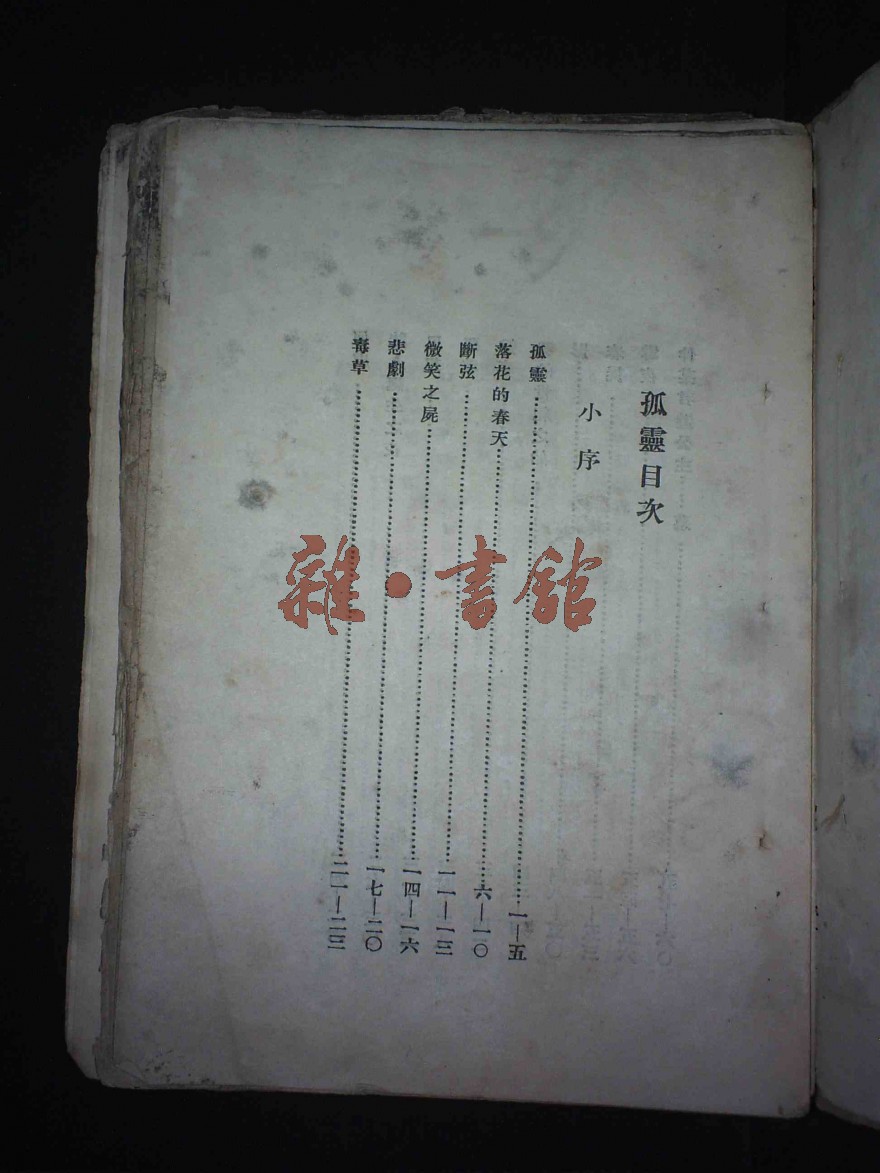 孤靈目次
小序
孤靈……一—五
落花的春天……六—一〇
斷弦……一一—一三
微笑之屍……一四—一六
悲劇……一七—二〇
毒草……二一—二三
雜·書館